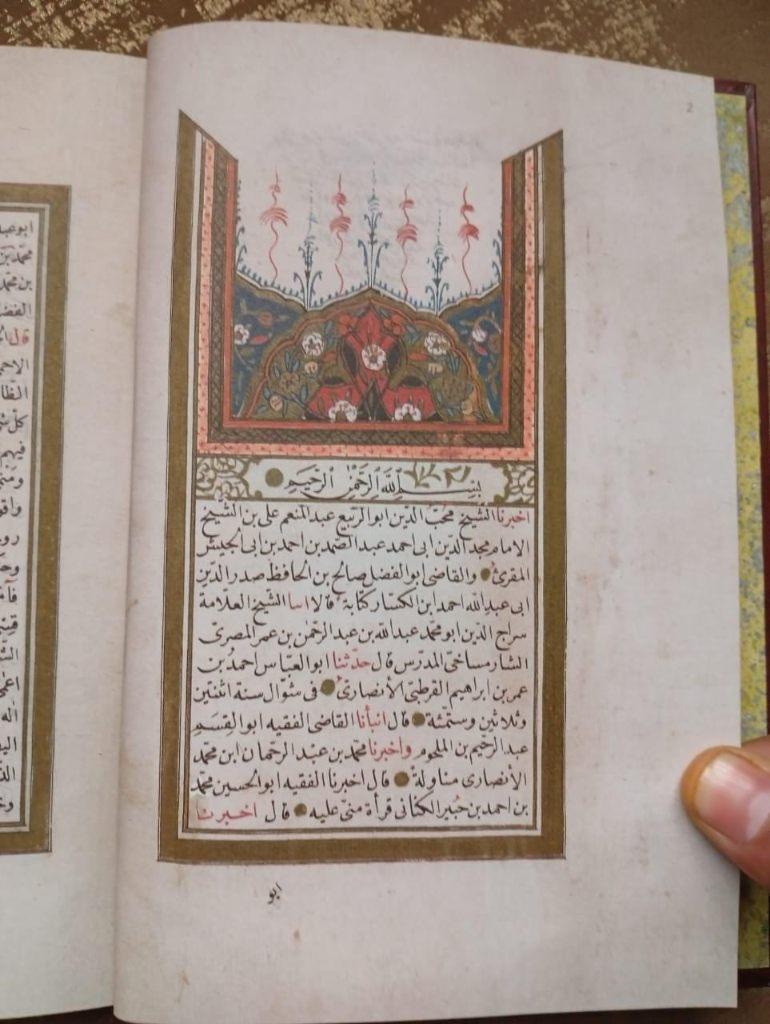 2
بسم الله الرحمن الرحيم
اخبرنا الشيخ محبّ الدين ابو الربيع عبد المنعم على بن الشيخ
الامام مجد الدين ابى احمد عبد الصّمد بن احمد بن ابى الجيش
المقرئ والقاضى ابو الفضل صالح بن الحافظ صدر الدّين
ابى عبد الله احمد ابن الكسّار كتابة قالا انبا الشّيخ العلاّمة
سراج الدّين ابو محمّد عبد الله بن عبد الرّحمن بن عمر المصرىّ
الشارمساحىّ المدرّس قال حدّثنا ابو العبّاس احمد بن
عمر بن ابراهيم القرطبّى الأنصارىّ فى شوّال سنة اثنتين
وثلاثين وستّمئة قال انبأنا القاضى الفقيه ابو القسم
عبد الرّحيم بن الملجوم واخبرنا محمّد بن عبد الرّحمان ابن محمّد
الأنصارى مناولةً قال اخبرنا الفقيه ابو الحسين محمّد
بن احمد بن جُبير الكنانى قرأة منّى عليه قال اخبرنا
ابو
ابو عبد
محمّد بن
بن محمّد
الفضل
كلّ
فيهم